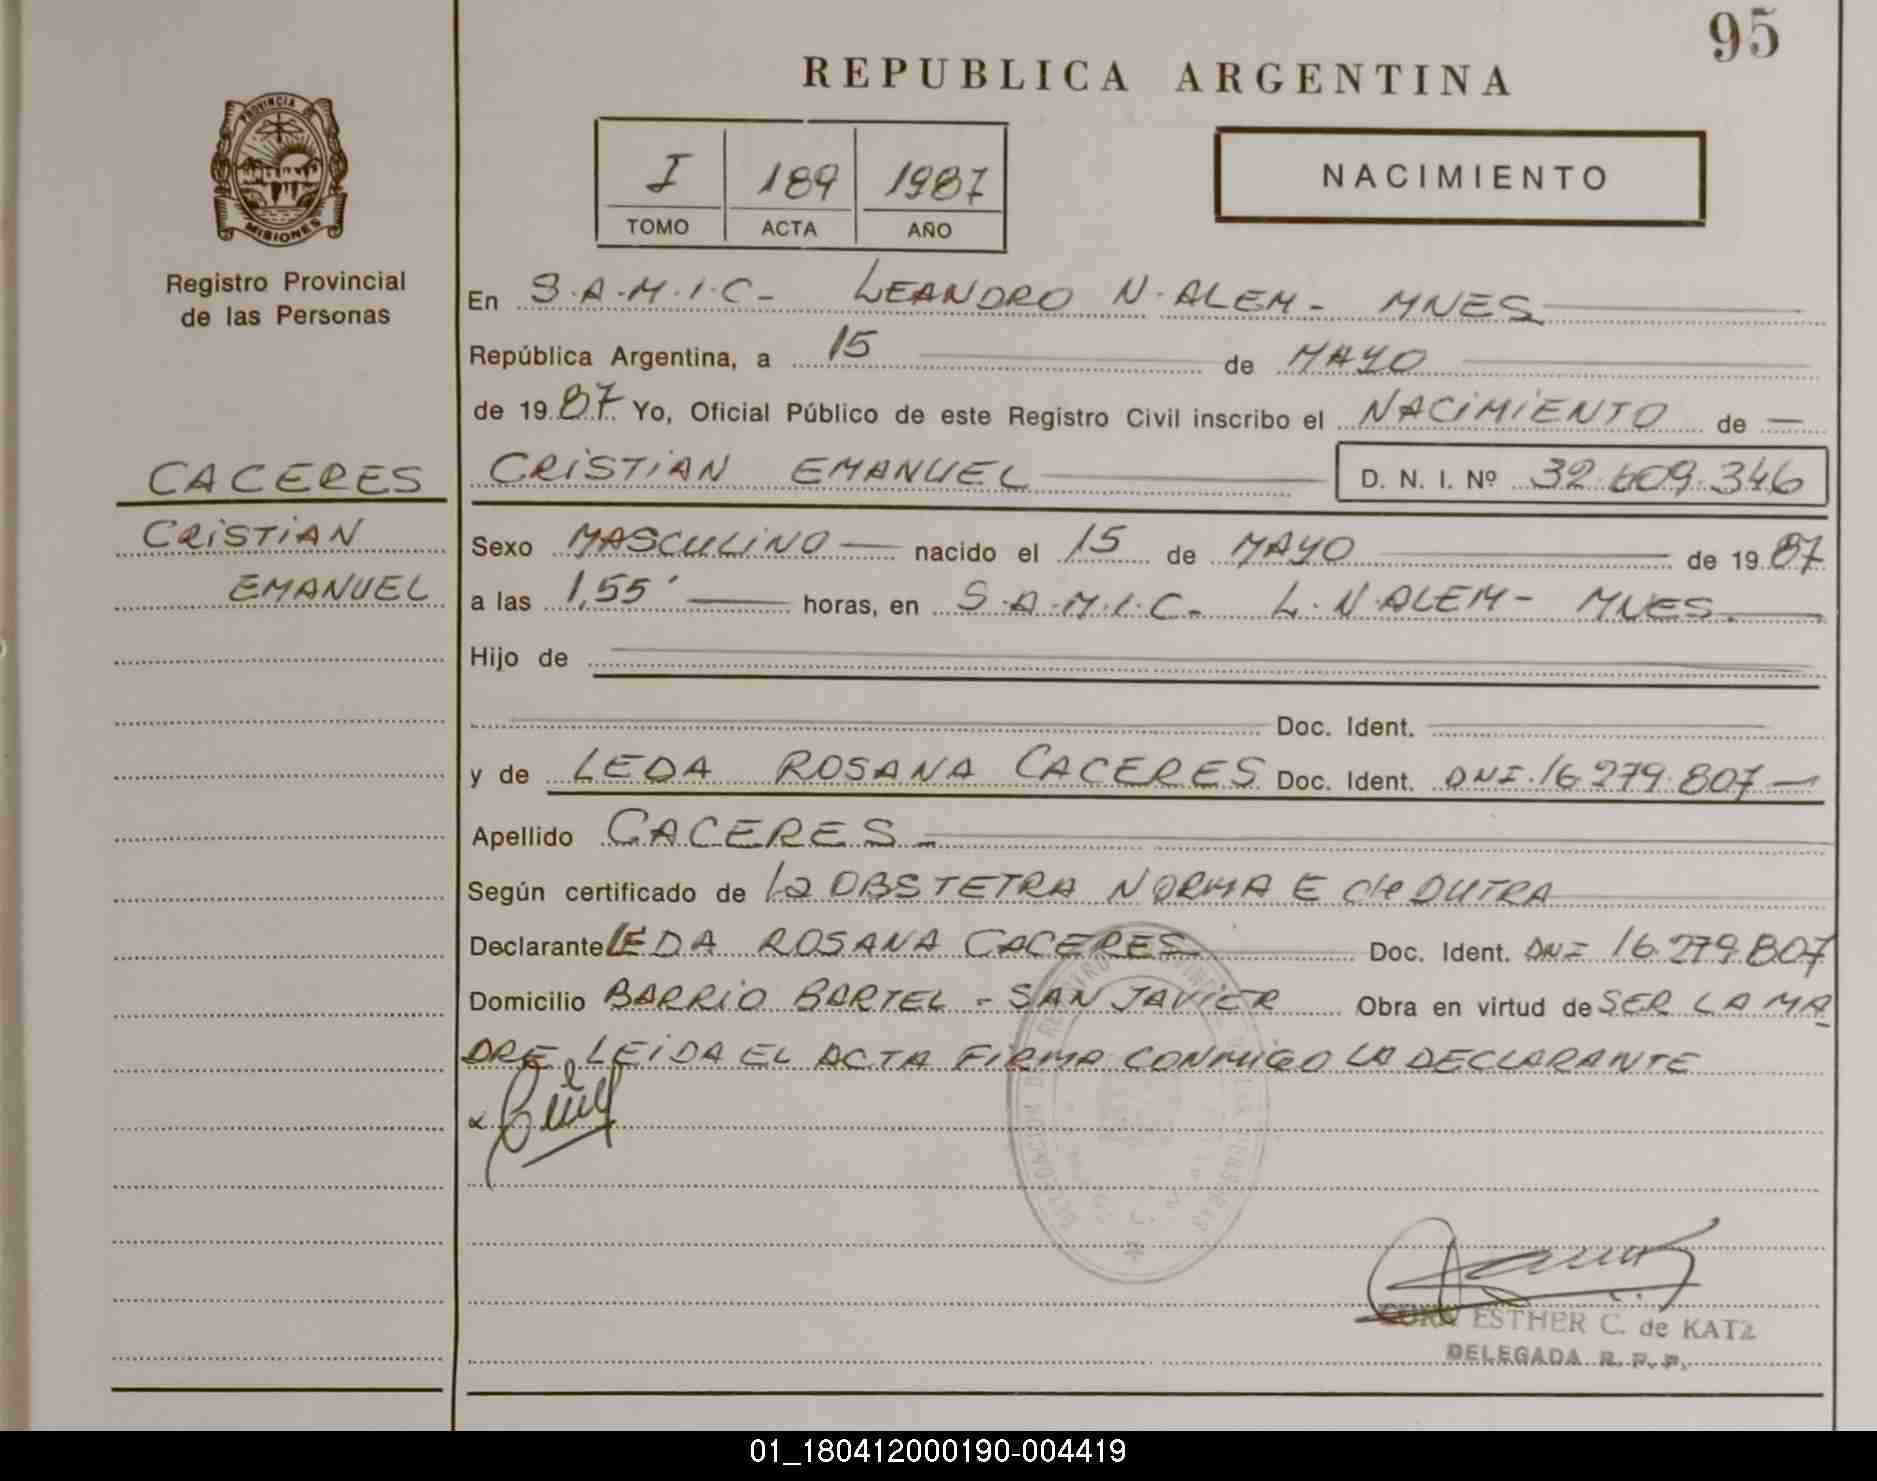 95
REPUBLICA ARGENTINA
PROVINCIA
MISIONES
Registro Provincial
de las Personas
I 189 1987
TOMO ACTA AÑO
NACIMIENTO
En S.A.M.I.C- LEANDRO N.ALEM- MNES
República Argentina, a 15 de MAYO
de 1987 Yo, Oficial Público de este Registro Civil inscribo el NACIMIENTO de
CACERES
CRISTIAN
EMANUEL
CRISTIAN EMANUEL D. N. I. Nº 32.609.346
Sexo MASCULINO nacido el 15 de MAYO de 1987
a las 1,55' horas, en S.A.M.I.C- L.N.ALEM- MNES.
Hijo de
Doc. Ident.
y de LEDA ROSANA CACERES Doc. Ident. DNI.16.279.807
Apellido CACERES
Según certificado de la OBSTETRA NORMA E de DUTRA
Declarante LEDA ROSANA CACERES Doc. Ident. DNI 16.279.807
Domicilio BARRIO BARTEL - SAN JAVIER Obra en virtud de SER LA MA
DRE LEIDA EL ACTA FIRMA CONMIGO LA DECLARANTE
ESTHER C. de KATZ
DELEGADA R. P. P.
01_180412000190-004419